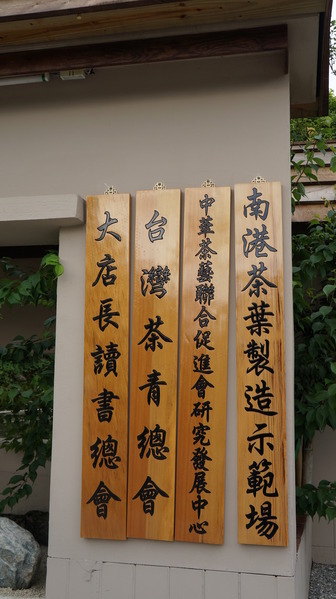 南港茶葉製造示範場
中華茶藝聯合促進會研究發展中心
台灣茶青總會
大店長讀書總會